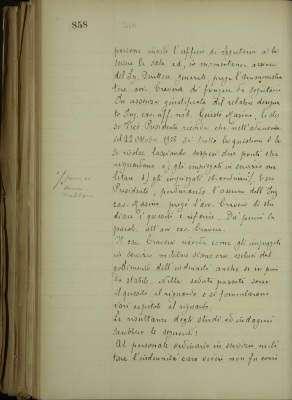 858
persone invita l'ufficio di segreteria a la
sciare la sala ed, in momentanea assenza
del Sig. Direttore generale, prega l'amministra
tore avv. Cravena di fungere da segretario
In assenza giustificata del relatore
to Ing. cav. uff. nob. Guido Marina, lo stes
so Vice Presidente ricorda che nell'adunanza
del 22 Ottobre 1918 si trattò la questione e la
si risolse lasciando sospesi due punti che
riguardano a) gli impiegati in servizio mi
litare b) gli impiegati straordinari. Esso
Presidente, perdurando l'assenza dell'Ing.
cav. Marina pregò l'avv. Cravena di stu
diare i quesiti e riferire. Dà perciò la
parola all'avv. cav. Cravena.
Il cav. Cravena ricorda come gli impiegati
in servizio militare siano ora esclusi dal
godimento dell'indennità anche se in pian
ta stabile. Nella seduta passata sorse
il quesito al riguardo e si formularono
vari capitoli al riguardo.
Le risultanze degli studi ed indagini
sarebbero le seguenti:
Al personale ordinario in servizio mili
tare l'indennità caro viveri non fu corri